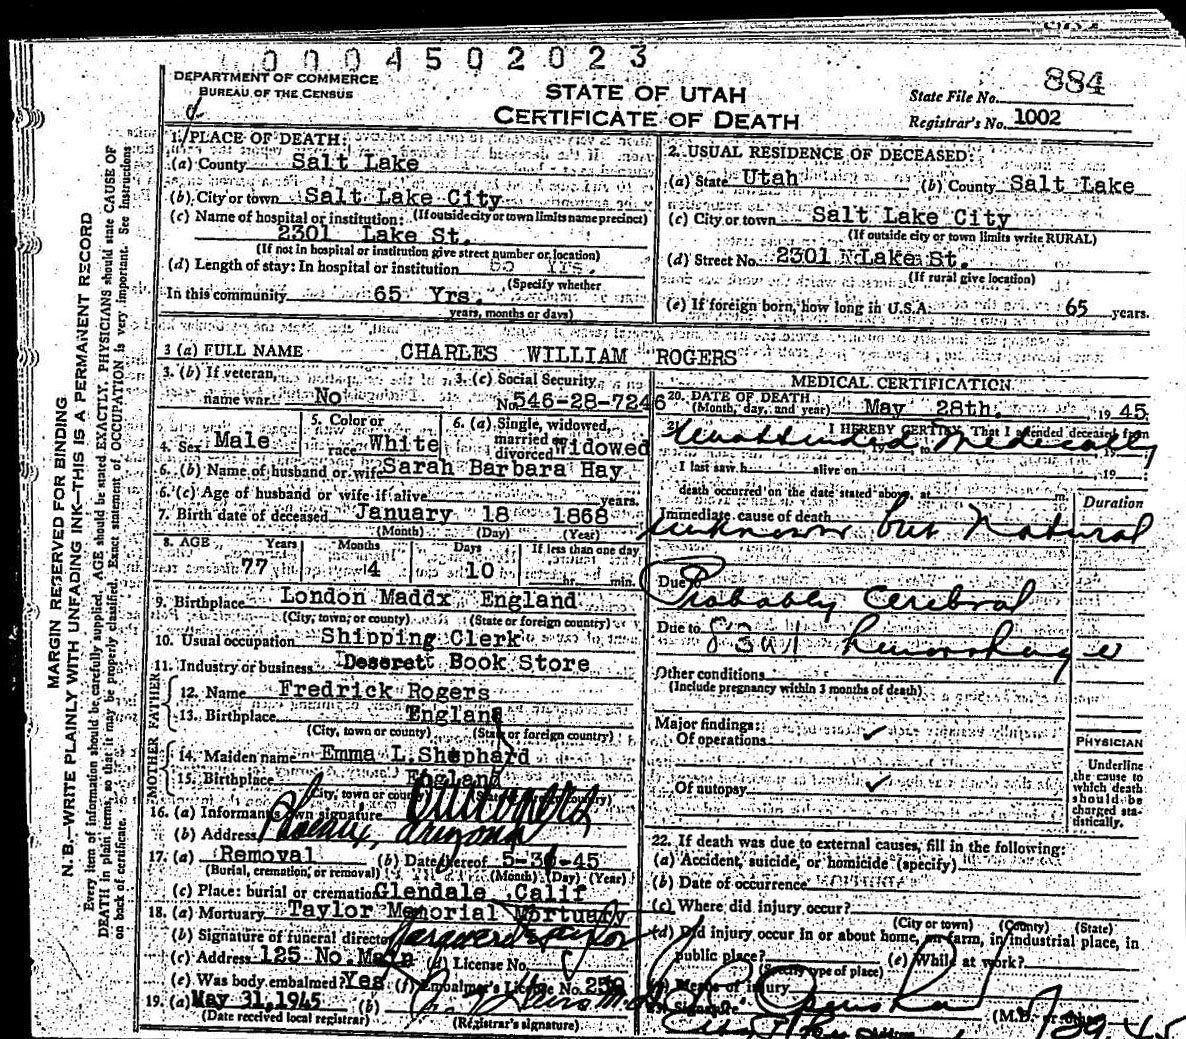 0004502023
DEPARTMENT OF COMMERCE
BUREAU OF THE CENSUS
STATE OF UTAH
CERTIFICATE OF DEATH
State File No. 884
Registrar's No. 1002
MARGIN RESERVED FOR BINDING
N. B.—WRITE PLAINLY WITH UNFADING INK—THIS IS A PERMANENT RECORD
Every item of information should be carefully supplied. AGE should be stated EXACTLY. PHYSICIANS should state CAUSE OF
DEATH in plain terms, so that it may be properly classified. Exact statement of OCCUPATION is very important. See instructions
on back of certificate.
1. PLACE OF DEATH:
(a) County Salt Lake
(b) City or town Salt Lake City
(If outside city or town limits name precinct)
(c) Name of hospital or institution:
2301 Lake St.
(If not in hospital or institution give street number or location)
(d) Length of stay: In hospital or institution 65 Yrs.
(Specify whether
In this community 65 Yrs.
years, months or days)
2. USUAL RESIDENCE OF DECEASED:
(a) State Utah (b) County Salt Lake
(c) City or town Salt Lake City
(If outside city or town limits write RURAL)
(d) Street No. 2301 Lake St.
(If rural give location)
(e) If foreign born, how long in U.S.A. 65 years.
3 (a) FULL NAME CHARLES WILLIAM ROGERS
3. (b) If veteran,
name war No
3. (c) Social Security
No. 546-28-7246
4. Sex Male
5. Color or
race White
6. (a) Single, widowed,
married or
divorced Widowed
6. (b) Name of husband or wife Sarah Barbara Hay
6. (c) Age of husband or wife if alive years.
7. Birth date of deceased January 18 1868
(Month) (Day) (Year)
8. AGE Years Months Days If less than one day
77 4 10 hr. min.
9. Birthplace London Maddx England
(City, town, or county) (State or foreign country)
10. Usual occupation Shipping Clerk
11. Industry or business Deserett Book Store
FATHER
12. Name Fredrick Rogers
13. Birthplace England
(City, town or county) (State or foreign country)
MOTHER
14. Maiden name Emma L. Shephard
15. Birthplace England
(City, town or county) (State or foreign country)
16. (a) Informant's own signature
(b) Address Phoenix, Arizona
17. (a) Removal (b) Date thereof 5-30-45
(Burial, cremation, or removal) (Month) (Day) (Year)
(c) Place: burial or cremation Glendale Calif
18. (a) Mortuary Taylor Memorial Mortuary
(b) Signature of funeral director
(c) Address 125 No. Main (d) License No.
(e) Was body embalmed? Yes (f) Embalmer's License No.
19. (a) May 31, 1945 (b)
(Date received local registrar) (Registrar's signature)
MEDICAL CERTIFICATION
20. DATE OF DEATH
(Month, day, and year) May 28th. 1945
21. I HEREBY CERTIFY, That I attended deceased from
Unattended Medically
19 to 19
I last saw h alive on 19
death occurred on the date stated above, at m.
Immediate cause of death Duration
unknown but Natural
Due to Probably Cerebral
Due to 83a1 hemorrhage
Other conditions
(Include pregnancy within 3 months of death)
Major findings:
Of operations ✓
Of autopsy ✓
PHYSICIAN
Underline
the cause to
which death
should be
charged sta-
tistically.
22. If death was due to external causes, fill in the following:
(a) Accident, suicide, or homicide (specify)
(b) Date of occurrence
(c) Where did injury occur?
(City or town) (County) (State)
(d) Did injury occur in or about home, on farm, in industrial place, in
public place? (e) While at work?
(Specify type of place)
Means of injury
Signature
(M.D. or other)